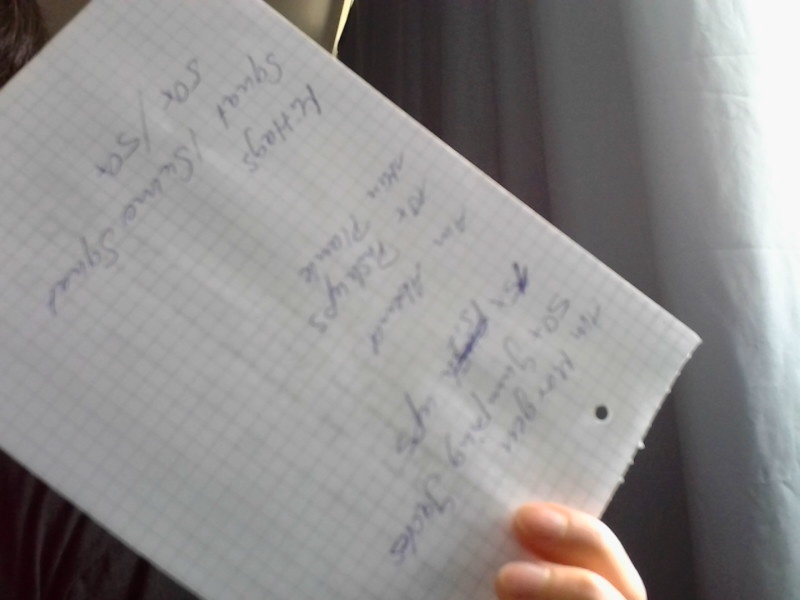 Am Morgen
50x Jumping Jacks
15x ups
Am Abend
10x Push ups
1min Plank
Mittags
Squat / Sumo Squad
50x / 50x